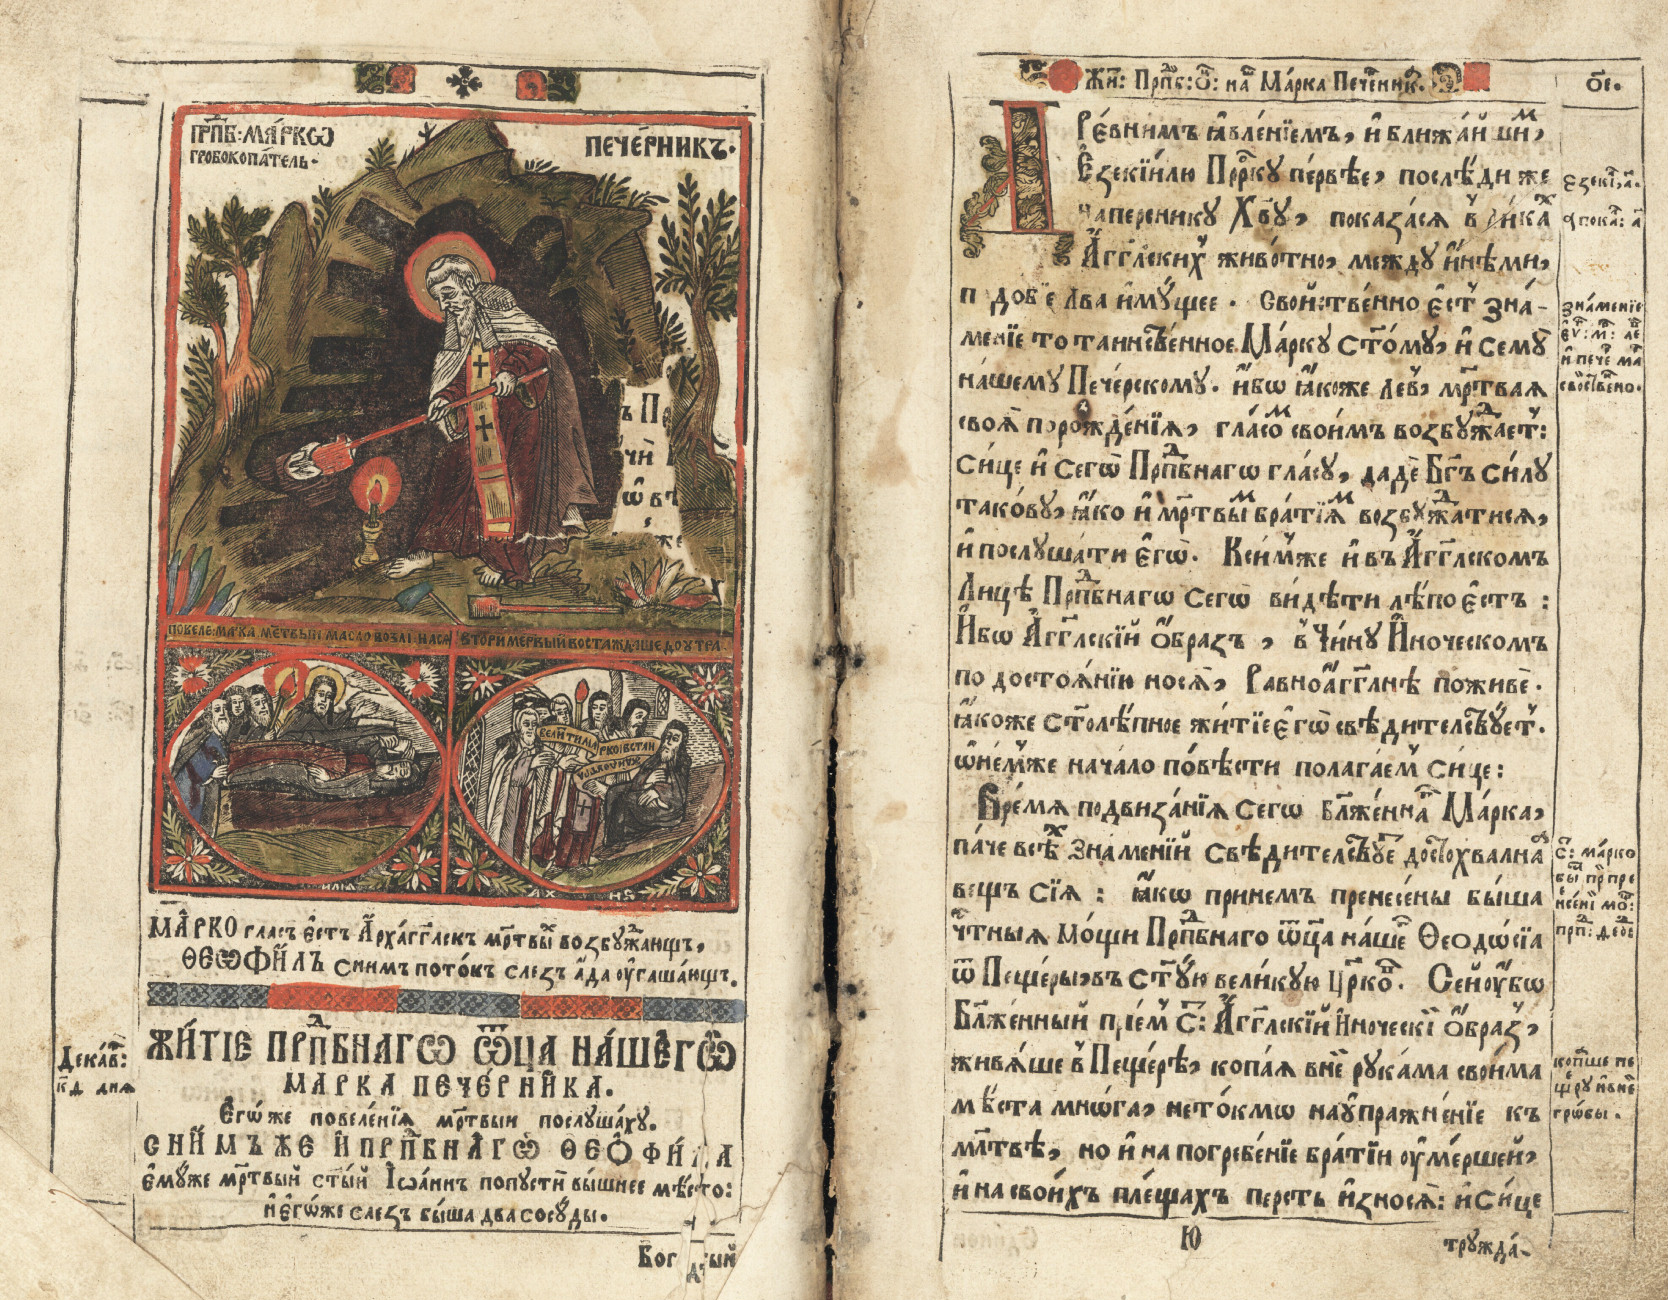 ПРПⷣБ: МАРКѠ
ГРОБОКОПА́ТЕЛЬ·
ПЕЧЕ́РНИКЪ·
ъ П
чн
ѡ в
же
ПОВЕЛЕ: МАРКА МЕ͠ТВЫЙ МАСЛО ВОЗЛІ: НАСѦ
ВТОРИ МЕРВЫЙ ВОСТАЖДАШЕ ДО УТРА
МА́РКО гласъ є҆́стъ А҆рха́гг҃лскъ мр҃твы̑ѧ возбꙋжда́ющъ,
ѲЕѠФИ́ЛЪ снимъ пото́къ слезъ а҆́да ᲂу҆гаша́ющъ.
Дека́в̾:
к҃д дня
ЖИ́ТІЕ ПРПⷣБНАГѠ Ѿ҃ЦА НА́ШЕГѠ
МАРКА ПЕЧЕ́РНИКА.
Е҆гѡ́же повеле́нїѧ мр҃твыи послꙋша́хꙋ.
СНИ́МЪЖЕ И҆ ПРПⷣБНАГѠ ѲЕѠФИ́ЛА
є҆мꙋ́же мр҃твый ст҃ы́й І҆ѡа́ннъ попꙋсти̑ вы́шнее мѣ́сто:
и҆ є҆гѡ́же слезъ бы́ша два сосꙋ́ды.
Жи҃: Прпⷣб: Ѻ҃: на҃ Ма́рка Пече́ник.
о҃е.
Ре́внимъ ꙗ҆вле́нїемъ, и҆ ближа́йшиⷨ,
Е҆зекі́илю Прⷪ҇ркꙋ пе́рвѣе, послѣ́ди же
на́персникꙋ Хв҃ꙋ, показа́сѧ в̾ ликаⷯ
А҆́гг҃лскихⸯ живо́тно, междꙋ и҆нѣ́ми,
подобїе лва и҆мꙋ́щее. Сво́йственно є҆́стⸯ зна́-
менїе то таинстве́нное Ма́ркꙋ ст҃о́мꙋ, и҆ семꙋ̀
на́шемꙋ Пече́рскомꙋ. и҆́бѡ ꙗ҆́коже левⸯ, мр҃твая
своѧ̑ порожде́нїѧ, гла́соⷨ свои́мъ возбꙋжда́етⸯ:
си́це и҆ сегѡ̀ Прпⷣбнагѡ гла́сꙋ, даде̑ Бг҃ъ си́лꙋ
тако́вꙋ, ꙗ҆́ко и҆ мр҃твыⷨ бра́тїѧⷨ возбꙋжда́тисѧ,
и҆ послꙋша́ти є҆гѡ̀. Ксимⸯже и҆ въ А҆́гг҃лскомъ
Ли́цѣ Прпⷣбнагѡ сегѡ̀ ви́дѣти лѣ́по є҆́стъ:
И҆́бѡ А҆́гг҃лскїй ѻ҆́бразъ, в̾ чи́нꙋ И҆́ноческомъ
по достоѧ́нїю носѧ̀, Равноа҆́гг҃лнѣ поживѐ.
ꙗ҆́коже ст҃олѣ́пное житїѐ є҆гѡ̀ свѣди́телствꙋетⸯ.
ѡ҆ не́мⸯже нача́ло по́вѣсти полага́емⸯ си́це:
Вре́мѧ подвиза́нїѧ сегѡ бл҃же́нна Ма́рка,
па́че всѣⷯ зна́менїй свѣди́телствꙋе достохвална
вещъ сїѧ̀: ꙗ҆́кѡ при не́мъ пренесе́ны бы́ша
чтⷭ҇ныѧ мо́щи Прпⷣбнаго ѿц҃а на́ше Ѳеодѡ́сїа
ѿ Пеще́ры, въ ст҃ꙋ́ю вели́кꙋю Црⷪ҇ко. Сейᲂу҆́бѡ
Бл҃же́нный прїе́мⸯ ст҃: А҆́гг҃лскїй и҆́ноческї Ѻ҆́бразⸯ,
живѧ́ше в̾ Пеще́рѣ, копа́ѧ вне́й рꙋка́ма свои́ма
мѣ́ста мнѡ́га, нето́кмѡ наᲂу҆пражне́нїе къ
мл҃твѣ, но и҆ на погребе́нїе бра́тїи ᲂу҆ме́ршей,
и҆ на свои́хъ плеща́хъ персть и҆зносѧ̀: и҆ си́це
Є҆зекі, а҃.
Апока: д҃
зна́менїе
єѵ҃: м҃: ле
и҆ пече ма
сво́йственно.
С҃: ма́рко
бы прⸯ пре
несе́нї мо:
копа́ше пе
ще́рꙋ и҆ вне
гро́бы.
Ю
трꙋжда́-